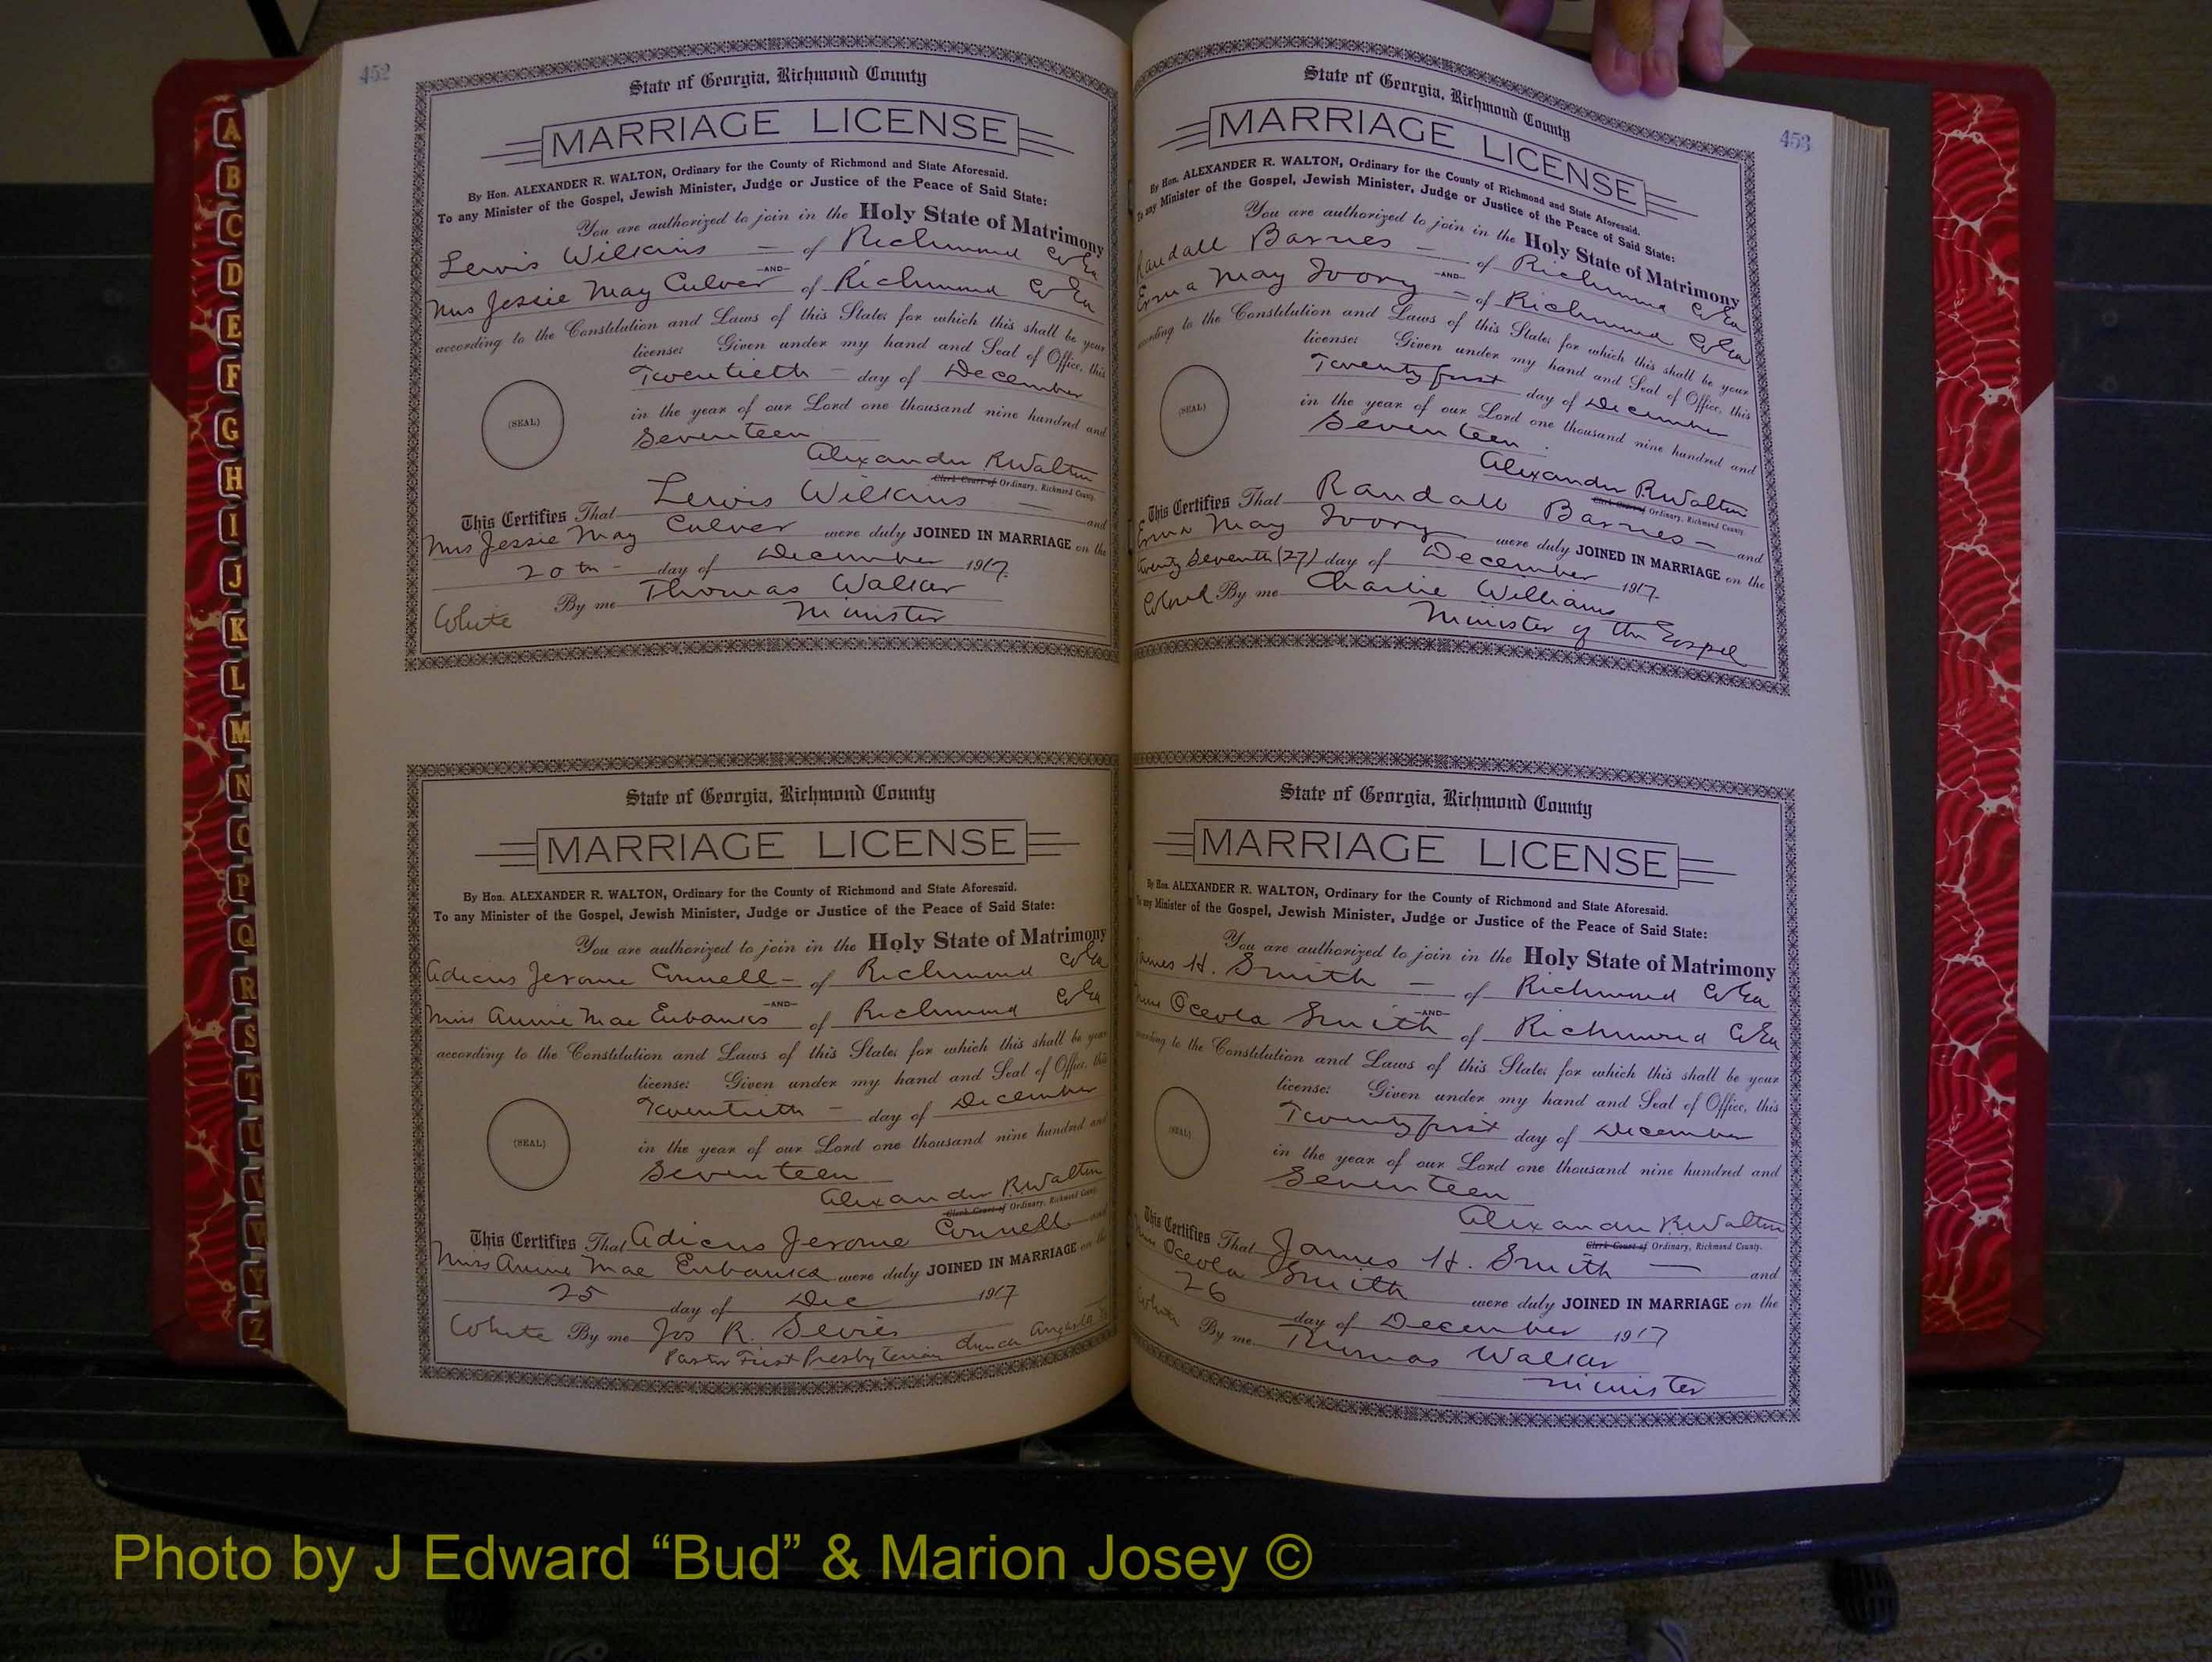 452
State of Georgia, Richmond County
MARRIAGE LICENSE
By Hon. ALEXANDER R. WALTON, Ordinary for the County of Richmond and State Aforesaid.
To any Minister of the Gospel, Jewish Minister, Judge or Justice of the Peace of Said State:
You are authorized to join in the Holy State of Matrimony
Lewis Wilkins — of Richmond Co Ga
-AND-
Mrs Jessie May Culver of Richmond Co Ga
according to the Constitution and Laws of this State, for which this shall be your
license: Given under my hand and Seal of Office, this
Twentieth — day of December
(SEAL)
in the year of our Lord one thousand nine hundred and
Seventeen
Alexander R Walton
Clerk Court of Ordinary, Richmond County.
This Certifies That Lewis Wilkins — and
Mrs Jessie May Culver were duly JOINED IN MARRIAGE on the
20th - day of December 1917.
White By me Thomas Walker
Minister
State of Georgia, Richmond County
MARRIAGE LICENSE
By Hon. ALEXANDER R. WALTON, Ordinary for the County of Richmond and State Aforesaid.
To any Minister of the Gospel, Jewish Minister, Judge or Justice of the Peace of Said State:
You are authorized to join in the Holy State of Matrimony
Jerome Connell - of Richmond Co Ga
-AND-
Miss Annie Mae Eubanks of Richmond Co Ga
according to the Constitution and Laws of this State, for which this shall be your
license: Given under my hand and Seal of Office, this
Twentieth — day of December
(SEAL)
in the year of our Lord one thousand nine hundred and
Seventeen
Alexander R Walton
Clerk Court of Ordinary, Richmond County.
This Certifies That Jerome Connell and
Miss Annie Mae Eubanks were duly JOINED IN MARRIAGE on the
25 day of Dec 1917
White By me Jos R. Sevier
Pastor First Presbyterian Church Augusta Ga
453
State of Georgia, Richmond County
MARRIAGE LICENSE
By Hon. ALEXANDER R. WALTON, Ordinary for the County of Richmond and State Aforesaid.
To any Minister of the Gospel, Jewish Minister, Judge or Justice of the Peace of Said State:
You are authorized to join in the Holy State of Matrimony
Randall Barnes — of Richmond Co Ga
-AND-
Erma May Ivory — of Richmond Co Ga
according to the Constitution and Laws of this State, for which this shall be your
license: Given under my hand and Seal of Office, this
Twenty first day of December
(SEAL)
in the year of our Lord one thousand nine hundred and
Seventeen
Alexander R Walton
Clerk Court of Ordinary, Richmond County.
This Certifies That Randall Barnes — and
Erma May Ivory were duly JOINED IN MARRIAGE on the
twenty Seventh (27) day of December 1917.
Colored By me Charlie Williams
Minister of the Gospel
State of Georgia, Richmond County
MARRIAGE LICENSE
By Hon. ALEXANDER R. WALTON, Ordinary for the County of Richmond and State Aforesaid.
To any Minister of the Gospel, Jewish Minister, Judge or Justice of the Peace of Said State:
You are authorized to join in the Holy State of Matrimony
James H. Smith — of Richmond Co Ga
-AND-
Oceola Smith of Richmond Co Ga
according to the Constitution and Laws of this State, for which this shall be your
license: Given under my hand and Seal of Office, this
Twenty first day of December
(SEAL)
in the year of our Lord one thousand nine hundred and
Seventeen
Alexander R Walton
Clerk Court of Ordinary, Richmond County.
This Certifies That James H. Smith — and
Oceola Smith were duly JOINED IN MARRIAGE on the
26 day of December 1917
White By me Thomas Walker
Minister
A
B
C
D
E
F
G
H
I
J
K
L
M
N
O
P
Q
R
S
T
U
V
W
Y
Z
Photo by J Edward “Bud” & Marion Josey ©